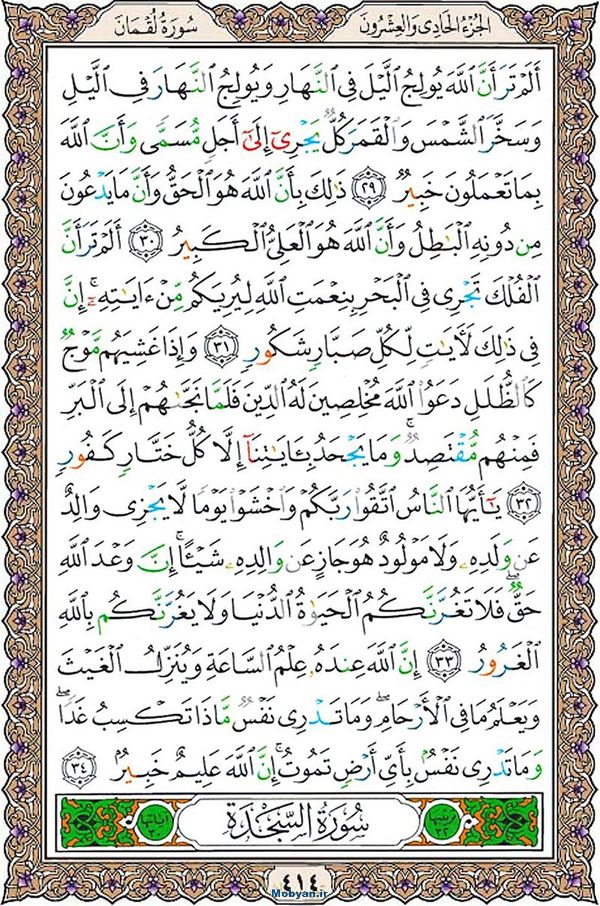 الجُزْءُ الحَادِى وَالعِشْرُونَ
سُورَةُ لُقْمَانَ
أَلَمْ تَرَ أَنَّ ٱللَّهَ يُولِجُ ٱلَّيْلَ فِى ٱلنَّهَارِ وَيُولِجُ ٱلنَّهَارَ فِى ٱلَّيْلِ
وَسَخَّرَ ٱلشَّمْسَ وَٱلْقَمَرَ كُلٌّ يَجْرِىٓ إِلَىٰٓ أَجَلٍ مُّسَمًّى وَأَنَّ ٱللَّهَ
بِمَا تَعْمَلُونَ خَبِيرٌ ٢٩ ذَٰلِكَ بِأَنَّ ٱللَّهَ هُوَ ٱلْحَقُّ وَأَنَّ مَا يَدْعُونَ
مِن دُونِهِ ٱلْبَٰطِلُ وَأَنَّ ٱللَّهَ هُوَ ٱلْعَلِىُّ ٱلْكَبِيرُ ٣٠ أَلَمْ تَرَ أَنَّ
ٱلْفُلْكَ تَجْرِى فِى ٱلْبَحْرِ بِنِعْمَتِ ٱللَّهِ لِيُرِيَكُم مِّنْ ءَايَٰتِهِۦٓ ۚ إِنَّ
فِى ذَٰلِكَ لَءَايَٰتٍ لِّكُلِّ صَبَّارٍ شَكُورٍ ٣١ وَإِذَا غَشِيَهُم مَّوْجٌ
كَٱلظُّلَلِ دَعَوُا۟ ٱللَّهَ مُخْلِصِينَ لَهُ ٱلدِّينَ فَلَمَّا نَجَّىٰهُمْ إِلَى ٱلْبَرِّ
فَمِنْهُم مُّقْتَصِدٌ ۚ وَمَا يَجْحَدُ بِـَٔايَٰتِنَآ إِلَّا كُلُّ خَتَّارٍ كَفُورٍ
٣٢ يَٰٓأَيُّهَا ٱلنَّاسُ ٱتَّقُوا۟ رَبَّكُمْ وَٱخْشَوْا۟ يَوْمًا لَّا يَجْزِى وَالِدٌ
عَن وَلَدِهِۦ وَلَا مَوْلُودٌ هُوَ جَازٍ عَن وَالِدِهِۦ شَيْـًٔا ۚ إِنَّ وَعْدَ ٱللَّهِ
حَقٌّ ۖ فَلَا تَغُرَّنَّكُمُ ٱلْحَيَوٰةُ ٱلدُّنْيَا وَلَا يَغُرَّنَّكُم بِٱللَّهِ
ٱلْغَرُورُ ٣٣ إِنَّ ٱللَّهَ عِندَهُۥ عِلْمُ ٱلسَّاعَةِ وَيُنَزِّلُ ٱلْغَيْثَ
وَيَعْلَمُ مَا فِى ٱلْأَرْحَامِ ۖ وَمَا تَدْرِى نَفْسٌ مَّاذَا تَكْسِبُ غَدًا ۖ
وَمَا تَدْرِى نَفْسٌۢ بِأَىِّ أَرْضٍ تَمُوتُ ۚ إِنَّ ٱللَّهَ عَلِيمٌ خَبِيرٌۢ ٣٤
ترتيبها ٣٢
سُورَةُ السَّجْدَةِ
آياتها ٣٠
٤١٤
Mobyan.ir